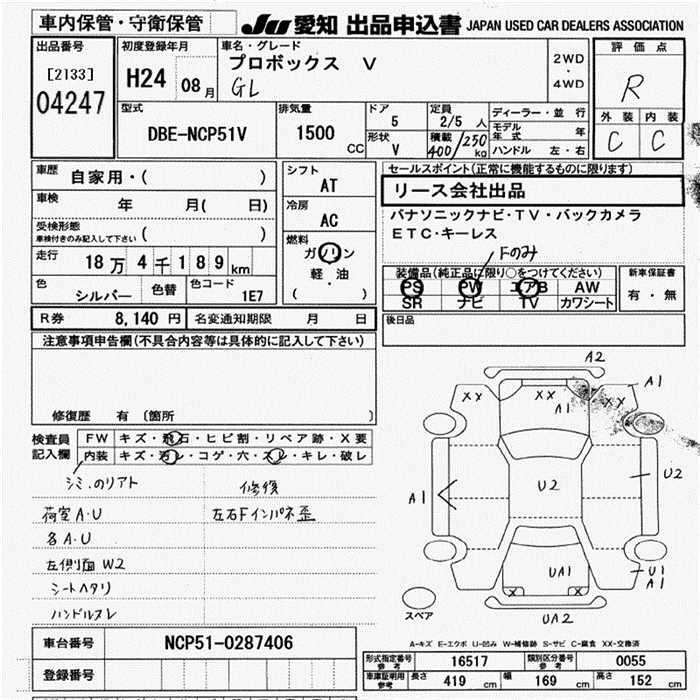 車内保管・守衛保管
JU 愛知 出品申込書 JAPAN USED CAR DEALERS ASSOCIATION
出品番号
[2133]
04247
初度登録年月
H24 08月
車名・グレード
プロボックス V
GL
2WD
・
4WD
評価点
R
外装 内装
C C
型式
DBE-NCP51V
排気量
1500 CC
ドア
5
定員
2/5 人
形状
V
積載
400/250 kg
ディーラー・並行
モデル年式 年
ハンドル 左・右
車歴 自家用・( )
車検 年 月( 日)
受検形態
車検付きのみ記入して下さい ( )
走行 18万4千189km
色 シルバー 色替 色コード 1E7
シフト
AT
冷房
AC
燃料
ガソリン
軽・油
( )
セールスポイント(正常に機能するものに限ります)
リース会社出品
パナソニックナビ・TV・バックカメラ
ETC・キーレス
Fのみ
装備品(純正品に限り○をつけてください)
PS PW エアB AW
SR ナビ TV カワシート
新車保証書
有・無
R券 8,140円 名変通知期限 月 日
後日品
注意事項申告欄(不具合内容等は具体的に記入して下さい)
修復歴 有 〔箇所 〕
検査員記入欄
FW キズ・飛石・ヒビ割・リペア跡・X要
内装 キズ・汚レ・コゲ・穴・スレ・キレ・破レ
シミ.のリアト
荷室A・U
各A・U
左側面W2
シートヘタリ
ハンドルスレ
修復
左右Fインパネ歪
A2
A1
XX XX XX
A1
A1
U2
U2
UA1
U1
A1
X X
UA2
スペア
A-キズ E-エクボ U-凹み W-補修跡 S-サビ C-腐食 XX-交換済
車台番号 NCP51-0287406
登録番号
形式指定番号 参考 16517 類別区分番号 参考 0055
車庫証明用 参考 長さ 419 cm 幅 169 cm 高さ 152 cm